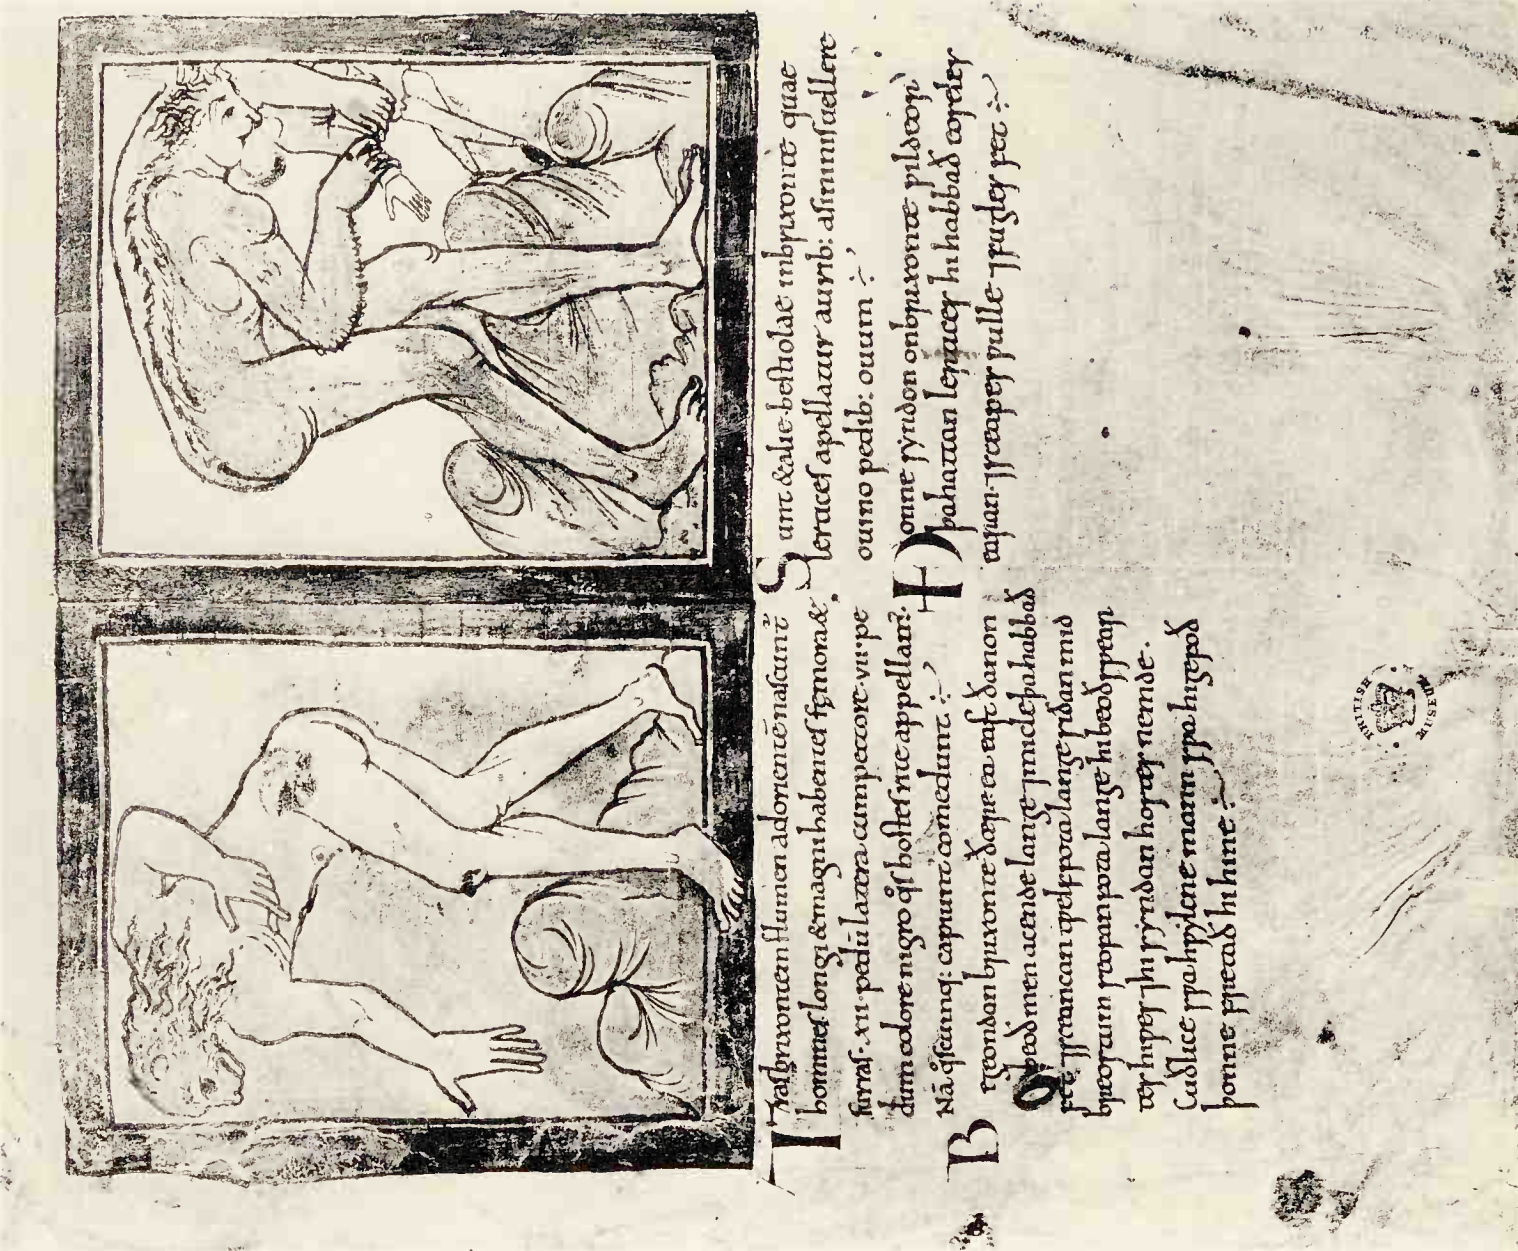 Tras brixontem flumen ad orientē nascunt̃
homines longi & magni habentes femora &
surras·xii·pedū latera cum pectore·vii·pe
dum colore nigro q̊s hostes rite appellam:
Nā q̊scumq: capiunt comedunt ÷
Begeondan brixonte ðære ea east ðanon
beoð men acende lange ⁊ micle þa habbað
fet ⁊ sceancan twelf fota lange sidan mid
breostum seofan fota lange hi beoð sweart
es hiwes ⁊ hi syndan hostes nemde·
Cuðlice swa hwylcne mann swa hi gefoð
þonne fretað hi hine ÷
Sunt & alie bestiolae in brixonte quae
lertices apellantur aurib: asininis uellere
ouino pedib: ouium ÷
Ðonne syndon on brixonte wildeor
þa hattan lertices hi habbað eoseles
earan ⁊ sceapes wulle ⁊ fugles fet ÷
BRITISH MUSEUM